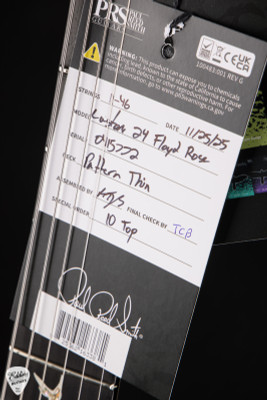 PRS
GUITARS
PAUL
REED
SMITH
UK CA CE
100483:001 REV G
WARNING: This product can expose you to chemicals
including lead, known to the state of California to cause
cancer, birth defects, or other reproductive harm. For
more information, go to www.p65warnings.ca.gov
STRINGS 11-46
DATE 11/25/25
MODEL Custom 24 Floyd Rose
SERIAL 0415772
NECK Pattern Thin
ASSEMBLED BY
FINAL CHECK BY TCB
SPECIAL ORDER 10 Top
Paul Reed Smith